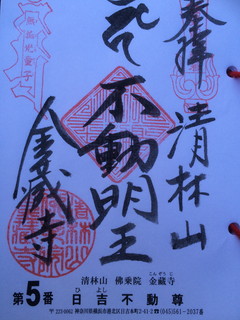 奉拝
清林山
不動明王
金蔵寺
清林山 佛乗院 金蔵寺
こんぞうじ
第5番 日吉不動尊
ひよし
〒223-0062 神奈川県横浜市港北区日吉本町2-41-2 ☎(045)561-2037番